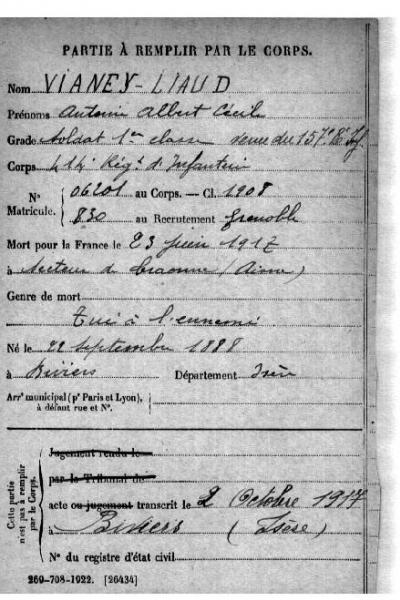 PARTIE À REMPLIR PAR LE CORPS.
Nom VIANEY-LIAUD
Prénoms Antonin Albert Cécil
Grade Soldat 1re classe venu du 157e Rt Inf
Corps 414 Régt d'Infanterie
No Matricule. 06201 au Corps. — Cl. 1908
830 au Recrutement Grenoble
Mort pour la France le 23 juin 1917
à Secteur de Craonne (Aisne)
Genre de mort
Tué à l'ennemi
Né le 22 Septembre 1888
à Biviers Département Isère
Arrt municipal (pr Paris et Lyon), à défaut rue et No.
Cette partie n'est pas à remplir par le Corps.
Jugement rendu le
par le Tribunal de
acte ou jugement transcrit le 2 Octobre 1917
à Biviers (Isère)
No du registre d'état civil
269-708-1922. [26434]